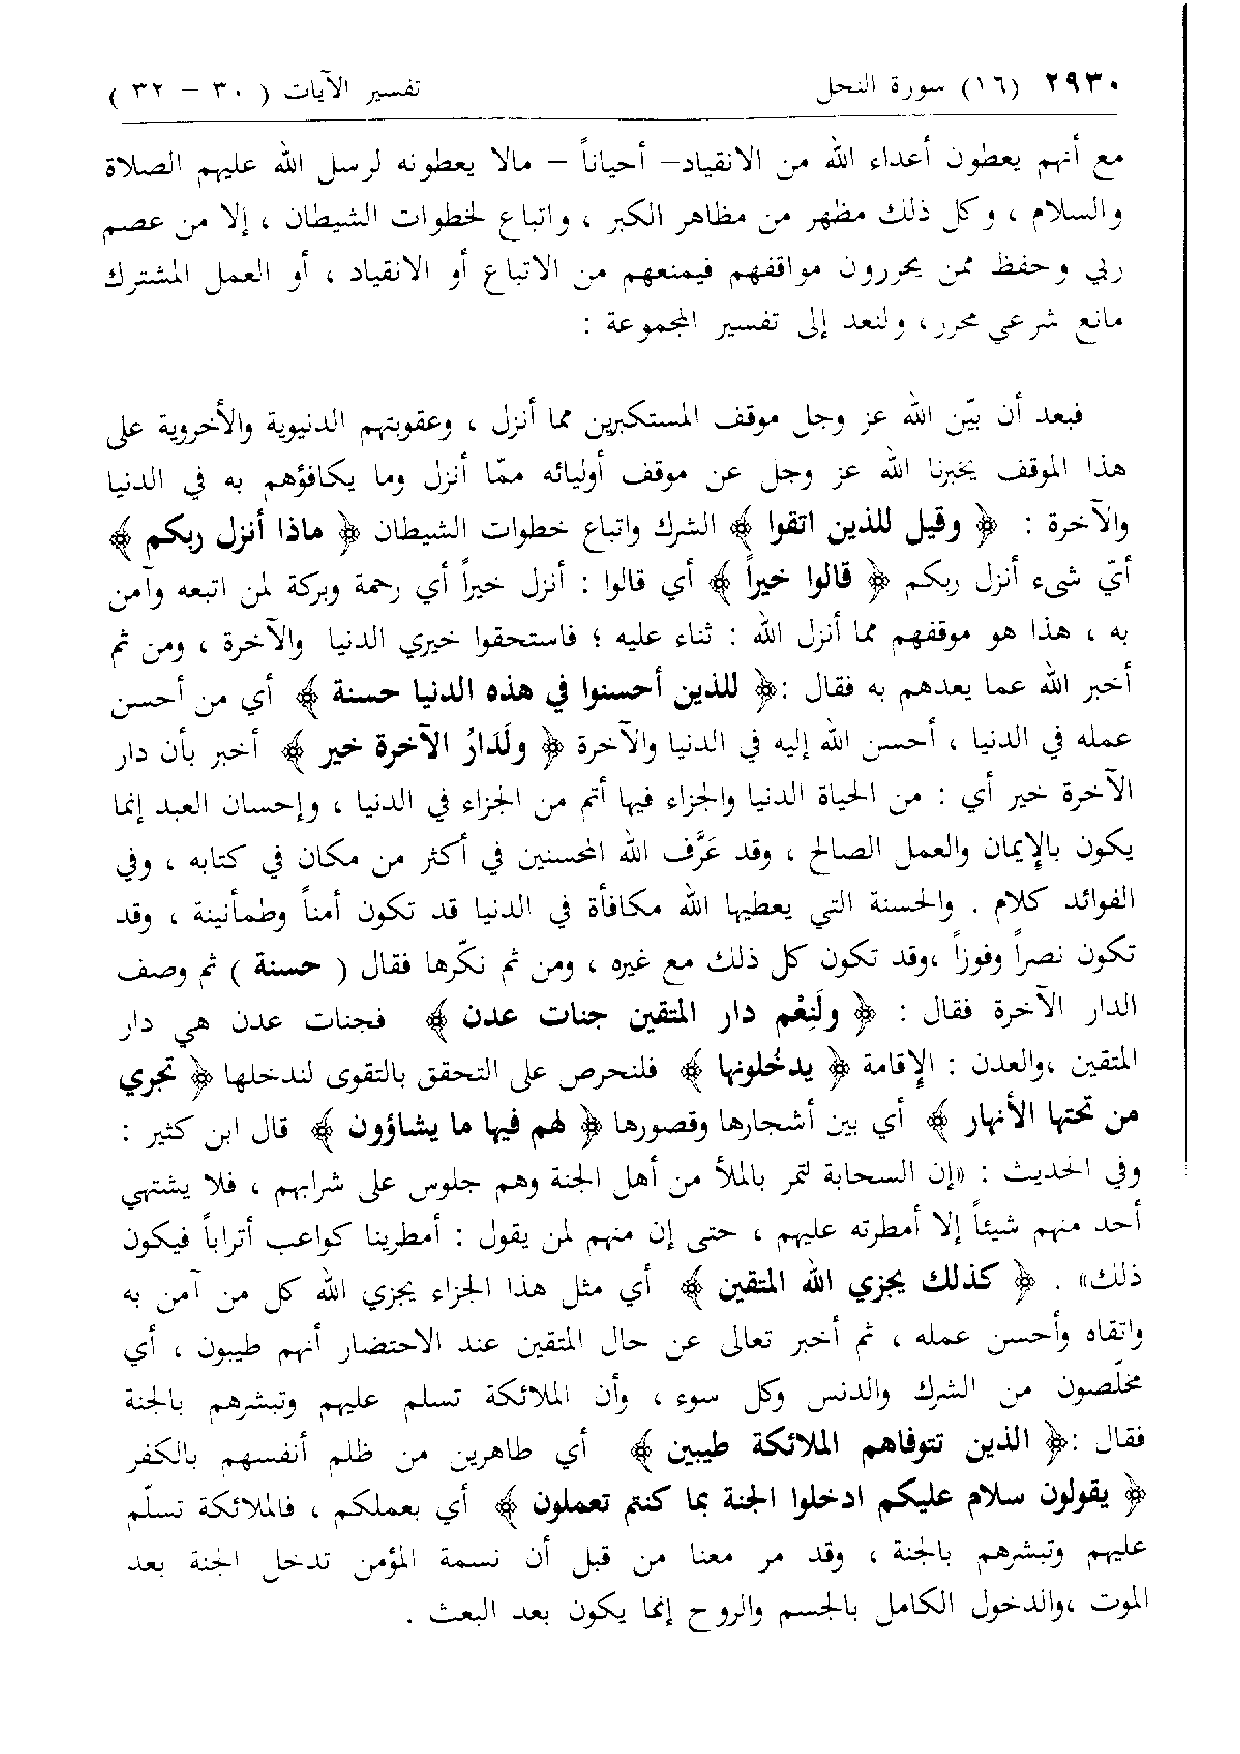 ٢٩٣٠ (١٦) سورة النحل تفسير الآيات ( ٣٠ – ٣٢ )
مع أنهم يعطون أعداء الله من الانقياد– أحياناً – مالا يعطونه لرسل الله عليهم الصلاة
والسلام ، وكل ذلك مظهر من مظاهر الكبر ، واتباع لخطوات الشيطان ، إلا من عصم
ربي وحفظ ممن يحررون مواقفهم فيمنعهم من الاتباع أو الانقياد ، أو العمل المشترك
مانع شرعي محرر، ولنعد إلى تفسير المجموعة :
فبعد أن بيّن الله عز وجل موقف المستكبرين مما أنزل ، وعقوبتهم الدنيوية والأخروية على
هذا الموقف يخبرنا الله عز وجل عن موقف أوليائه ممّا أنزل وما يكافؤهم به في الدنيا
والآخرة : ﴿ وقيل للذين اتقوا ﴾ الشرك واتباع خطوات الشيطان ﴿ ماذا أنزل ربكم ﴾
أيّ شىء أنزل ربكم ﴿ قالوا خيراً ﴾ أي قالوا : أنزل خيراً أي رحمة وبركة لمن اتبعه وآمن
به ، هذا هو موقفهم مما أنزل الله : ثناء عليه ؛ فاستحقوا خيري الدنيا والآخرة ، ومن ثم
أخبر الله عما يعدهم به فقال :﴿ للذين أحسنوا في هذه الدنيا حسنة ﴾ أي من أحسن
عمله في الدنيا ، أحسن الله إليه في الدنيا والآخرة ﴿ ولَدَارُ الآخرة خير ﴾ أخبر بأن دار
الآخرة خير أي : من الحياة الدنيا والجزاء فيها أتم من الجزاء في الدنيا ، وإحسان العبد إنما
يكون بالإيمان والعمل الصالح ، وقد عَرَّف الله المحسنين في أكثر من مكان في كتابه ، وفي
الفوائد كلام . والحسنة التي يعطيها الله مكافأة في الدنيا قد تكون أمناً وطمأنينة ، وقد
تكون نصراً وفوزاً ،وقد تكون كل ذلك مع غيره ، ومن ثم نكّرها فقال ( حسنة ) ثم وصف
الدار الآخرة فقال : ﴿ ولَنِعْم دار المتقين جنات عدن ﴾ فجنات عدن هي دار
المتقين ،والعدن : الإقامة ﴿ يدخُلونها ﴾ فلنحرص على التحقق بالتقوى لندخلها ﴿ تجري
من تحتها الأنهار ﴾ أي بين أشجارها وقصورها ﴿ لهم فيها ما يشاؤون ﴾ قال ابن كثير :
وفي الحديث : «إن السحابة لتمر بالملأ من أهل الجنة وهم جلوس على شرابهم ، فلا يشتهي
أحد منهم شيئاً إلا أمطرته عليهم ، حتى إن منهم لمن يقول : أمطرينا كواعب أتراباً فيكون
ذلك» . ﴿ كذلك يجزي الله المتقين ﴾ أي مثل هذا الجزاء يجزي الله كل من آمن به
واتقاه وأحسن عمله ، ثم أخبر تعالى عن حال المتقين عند الاحتضار أنهم طيبون ، أي
مخلّصون من الشرك والدنس وكل سوء ، وأن الملائكة تسلم عليهم وتبشرهم بالجنة
فقال :﴿ الذين تتوفاهم الملائكة طيبين ﴾ أي طاهرين من ظلم أنفسهم بالكفر
﴿ يقولون سلام عليكم ادخلوا الجنة بما كنتم تعملون ﴾ أي بعملكم ، فالملائكة تسلّم
عليهم وتبشرهم بالجنة ، وقد مر معنا من قبل أن نسمة المؤمن تدخل الجنة بعد
الموت ،والدخول الكامل بالجسم والروح إنما يكون بعد البعث .